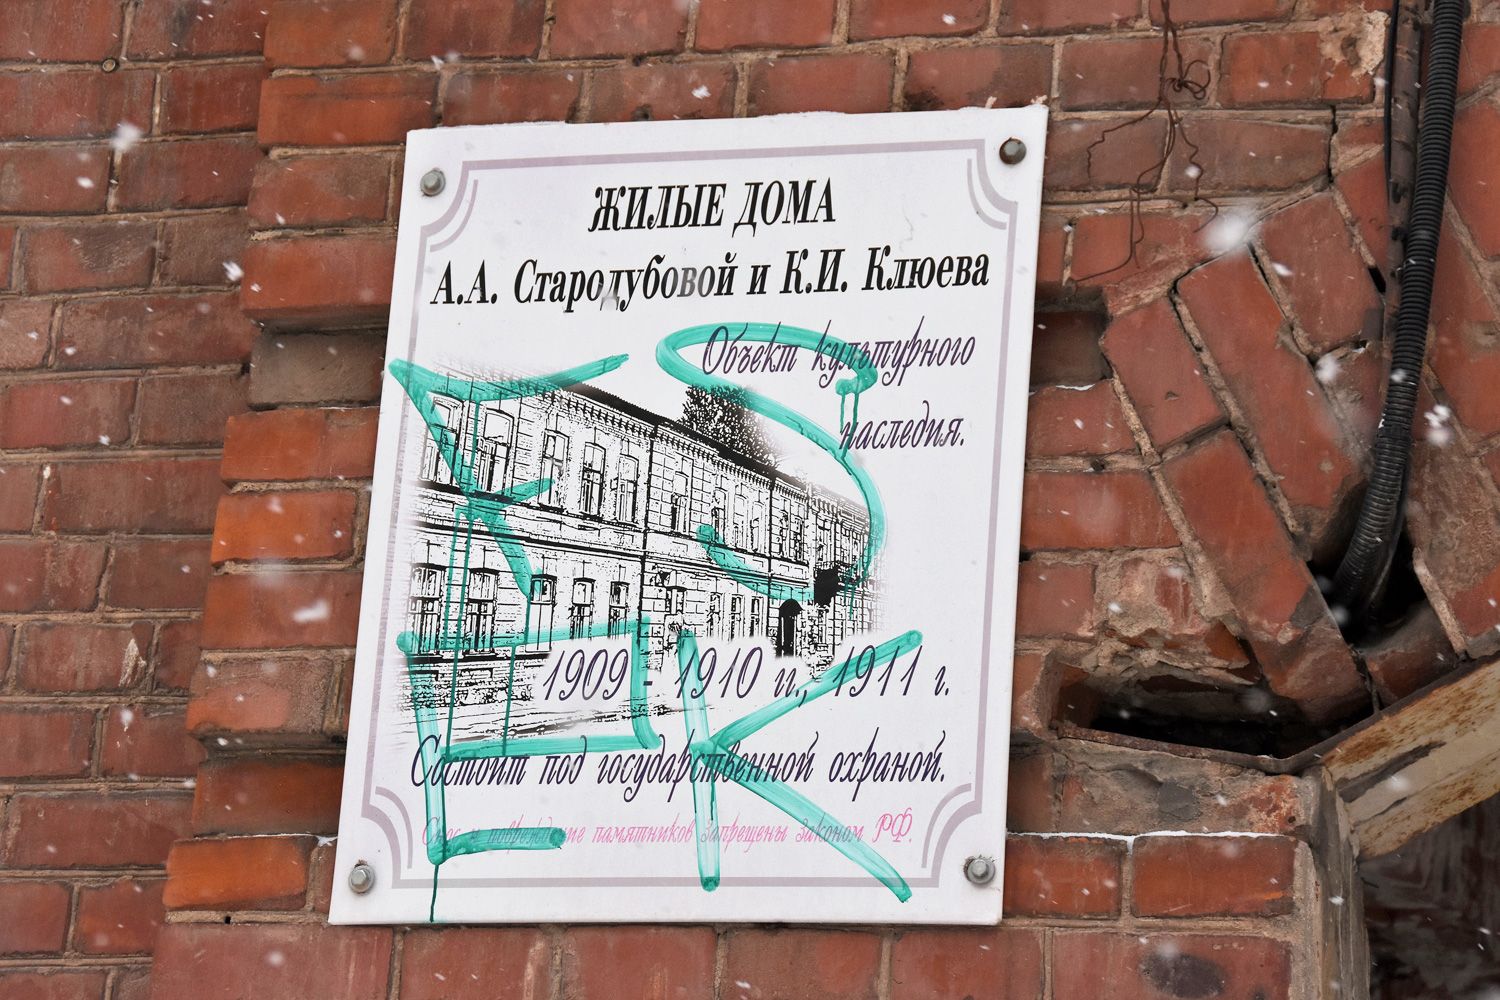 ЖИЛЫЕ ДОМА
А.А. Стародубовой и К.И. Клюева
Объект культурного
наследия.
1909 - 1910 гг., 1911 г.
Состоит под государственной охраной.
Снос и повреждение памятников запрещены законом РФ.